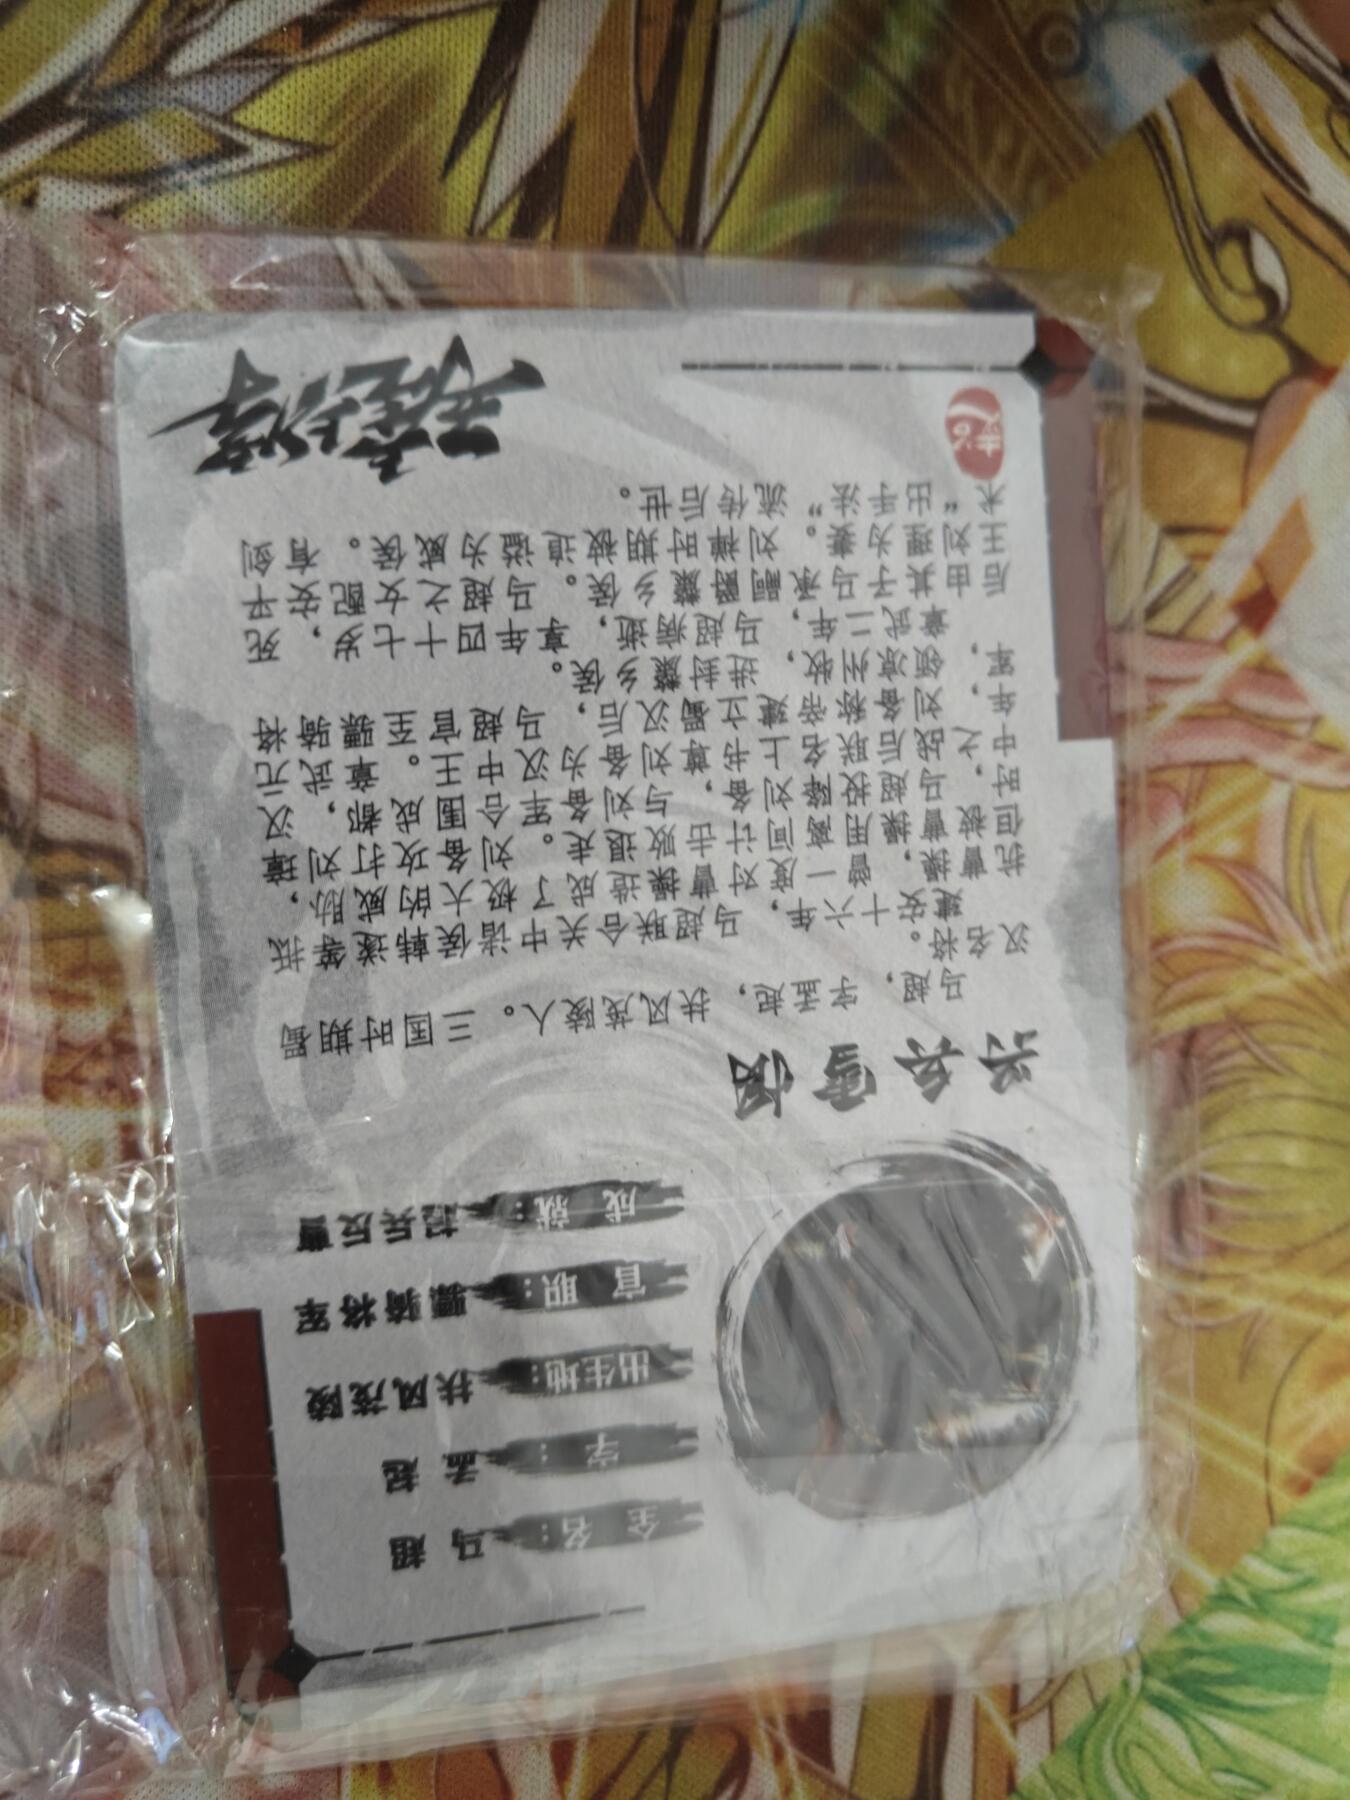 全 名： 马 超
字 ： 孟 起
出生地： 扶风茂陵
官 职： 骠骑将军
成 就： 起兵反曹
兴兵雪恨
马超，字孟起，扶风茂陵人。三国时期蜀
汉名将。
建安十六年，马超联合关中诸侯韩遂等抵
抗曹操，曾一度对曹操造成了极大的威胁，
但被曹操用离间计击败退走。刘备攻打刘璋
时，马超投降刘备，与刘备军合围成都，汉
中之战后联名上书尊刘备为汉中王。章武元
年，刘备称帝建立蜀汉后，马超官至骠骑将
军，领凉州牧，进封斄乡侯。
章武二年，马超病逝，享年四十七岁，死
后由其子马承嗣爵斄乡侯。马超之女配安平
王刘理为妻。刘禅时期被追谥为威侯。有剑
术“出手法”流传后世。